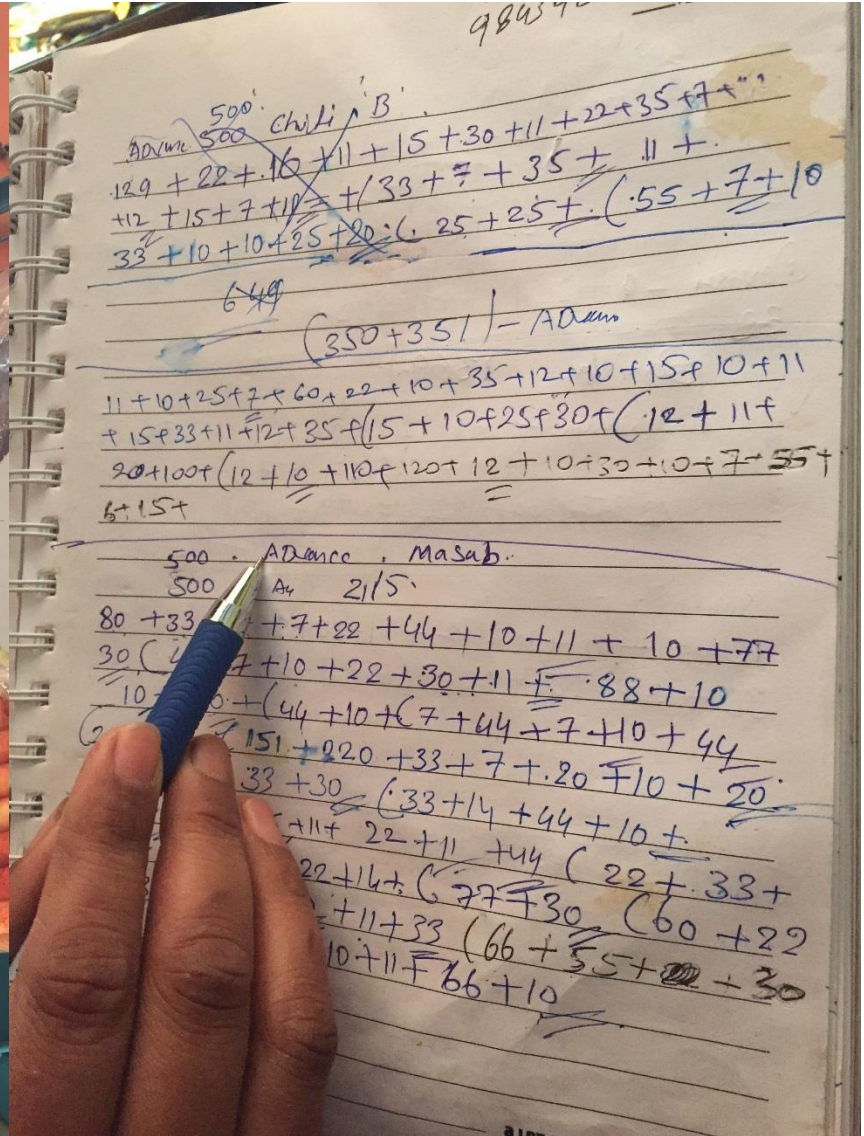 500
Advance 500 Chili 'B'
129 + 22 + 16 + 11 + 15 + 30 + 11 + 22 + 35 + 7 +
+12 + 15 + 7 + 11 + (33 + 7 + 35 + 11 +
33 + 10 + 10 + 25 + 20 ( 25 + 25 + ( 55 + 7 + 10
649
(350 + 351) -
11 + 10 + 25 + 7 + 60 + 22 + 10 + 35 + 12 + 10 + 15 + 10 + 11
+ 15 + 33 + 11 + 12 + 35 + (15 + 10 + 25 + 30 + ( 12 + 11 +
20 + 100 + (12 + 10 + 110 + 120 + 12 + 10 + 30 + 10 + 7 + 55 +
6 + 15 +
500 . Advance . Masab.
500 21/5
80 + 33 + 7 + 22 + 44 + 10 + 11 + 10 + 77
30 ( 7 + 10 + 22 + 30 + 11 + 88 + 10
10 + (44 + 10 + (7 + 44 + 7 + 10 + 44
151 + 220 + 33 + 7 + 20 + 10 + 20
33 + 30 ( 33 + 14 + 44 + 10 +
+ 11 + 22 + 11 + 44 ( 22 + 33 +
22 + 14 + ( 77 + 30 (60 + 22
+ 11 + 33 (66 + 55 + + 30
10 + 11 + 66 + 10